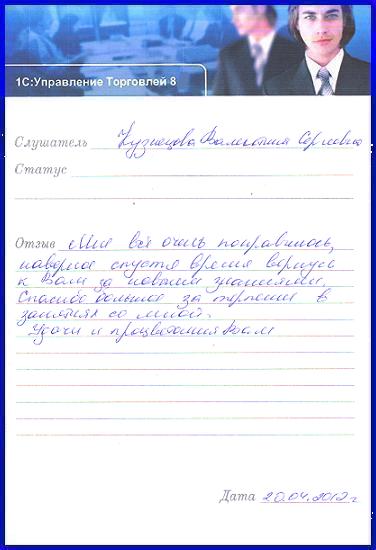 1С:Управление Торговлей 8
Слушатель Кузнецова Валентина Сергеевна
Статус
Отзыв Мне всё очень понравилось,
наверное спустя время вернусь
к Вам за новыми знаниями.
Спасибо большое за терпение в
занятиях со мной.
Удачи и процветания Вам
Дата 20.04.2012 г